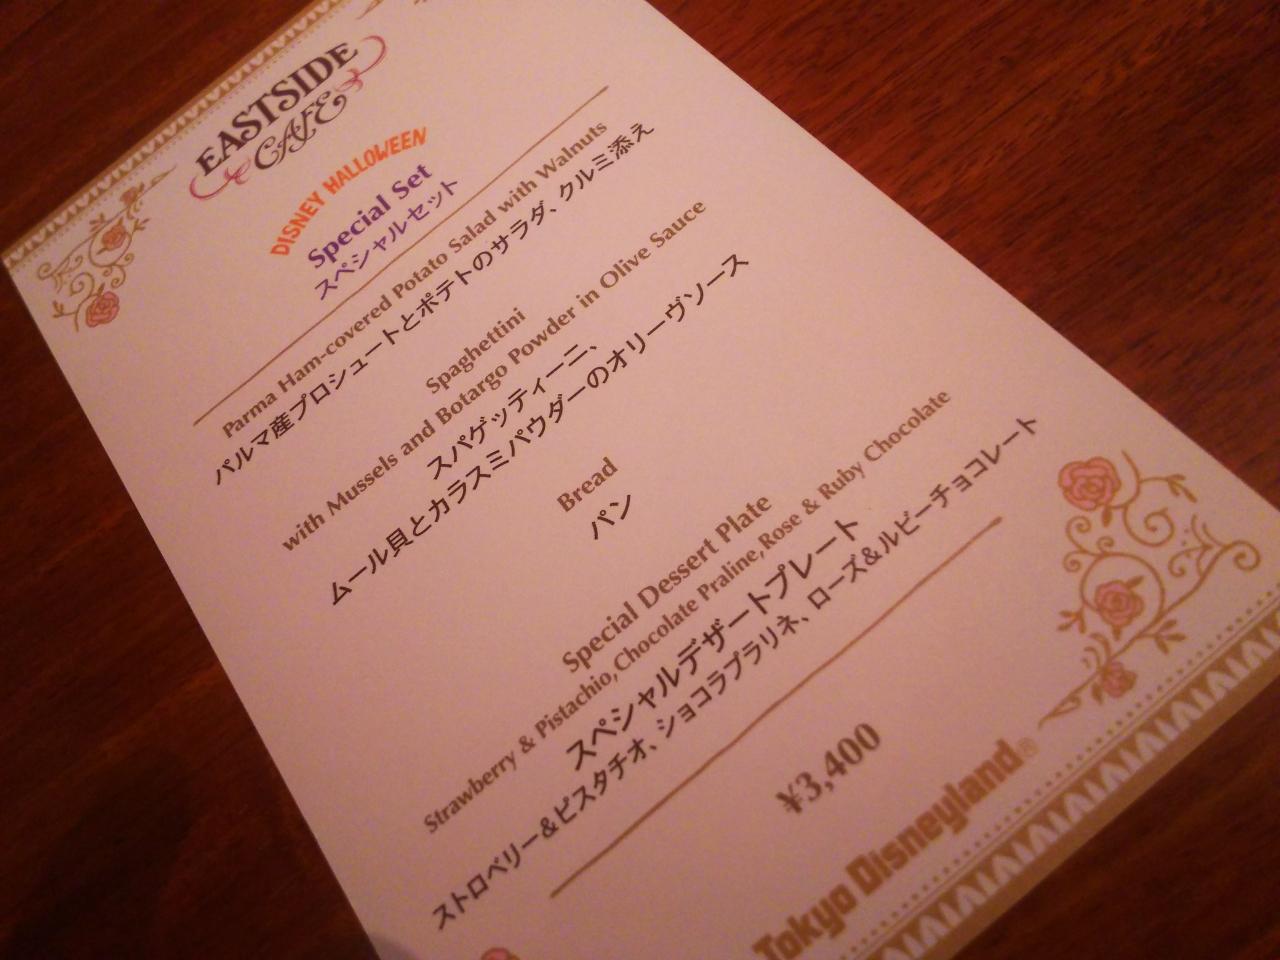 EASTSIDE
CAFE
DISNEY HALLOWEEN
Special Set
スペシャルセット
Parma Ham-covered Potato Salad with Walnuts
パルマ産プロシュートとポテトのサラダ、クルミ添え
Spaghettini
with Mussels and Botargo Powder in Olive Sauce
スパゲッティーニ、
ムール貝とカラスミパウダーのオリーヴソース
Bread
パン
Special Dessert Plate
Strawberry & Pistachio, Chocolate Praline, Rose & Ruby Chocolate
スペシャルデザートプレート
ストロベリー&ピスタチオ、ショコラプラリネ、ローズ&ルビーチョコレート
¥3,400
Tokyo Disneyland®